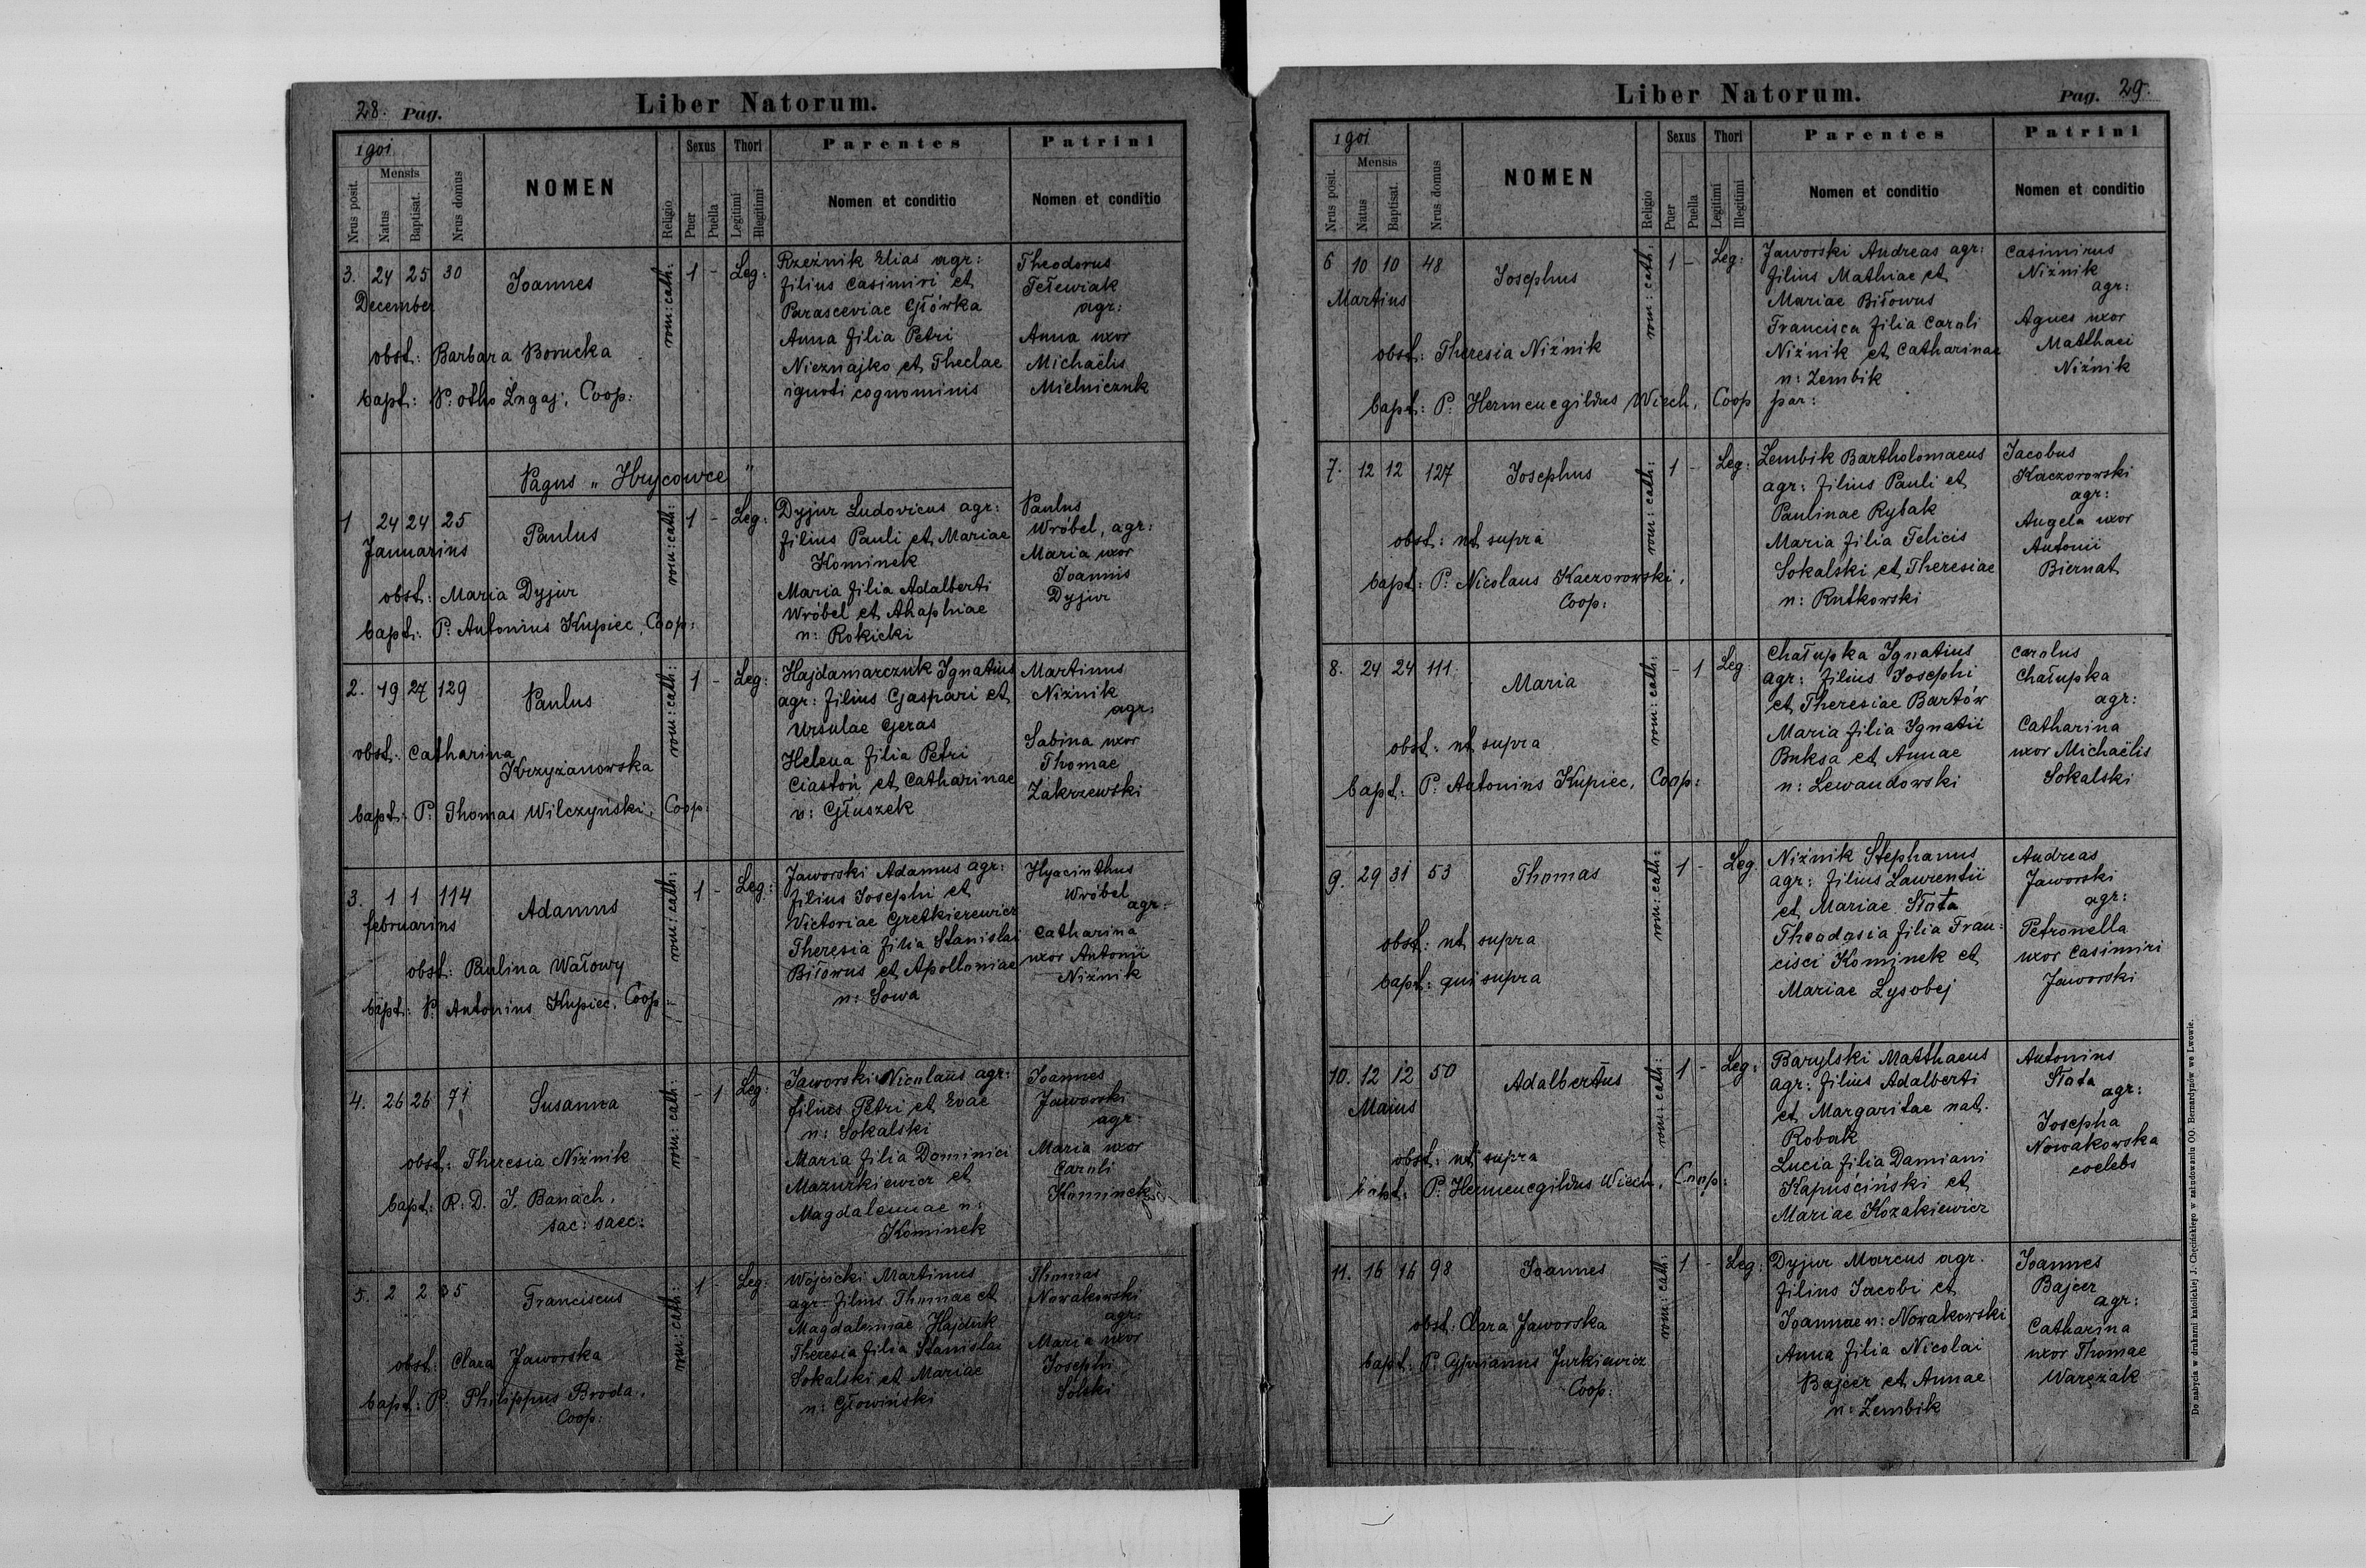 28. Pag.
Liber Natorum.
1901
Nrus posit.
Mensis
Natus
Baptisat.
Nrus domus
NOMEN
Religio
Sexus
Puer
Puella
Thori
Legitimi
Illegitimi
Parentes
Nomen et conditio
Patrini
Nomen et conditio
3. 24 25 30
December
Joannes
obst: Barbara Borucka
bapt: P: Otho Lngaj, Coop:
rom: cath:
1 - Leg:
Rzeźnik Elias agr:
filius Casimiri et
Parasceviae Główka
Anna filia Petri
Nieznajko et Theclae
ignoti cognominis
Theodorus
Tetewiak
agr:
Anna uxor
Michaëlis
Mielniczuk
Pagus „Hrycowce"
1 24 24 25
Januarius
Paulus
obst: Maria Dyjur
bapt: P: Antonius Kupiec, Coop:
rom: cath:
1 - Leg:
Dyjur Ludovicus agr:
filius Pauli et Mariae
Kominek
Maria filia Adalberti
Wróbel et Ahaphiae
n: Rokicki
Paulus
Wróbel, agr:
Maria uxor
Joannis
Dyjur
2. 19 27 129
Paulus
obst: Catharina
Krzyżanowska
bapt: P: Thomas Wilczyński, Coop.
rom: cath:
1 - Leg:
Hajdamarczuk Ignatius
agr: filius Gaspari et
Ursulae Geras
Helena filia Petri
Ciastoń et Catharinae
n: Głuszek
Martinus
Niżnik
agr:
Sabina uxor
Thomae
Zakrzewski
3. 1 1 114
februarius
Adamus
obst: Paulina Wałowy
bapt: P. Antonius Kupiec, Coop:
rom: cath:
1 - Leg:
Jaworski Adamus agr:
filius Josephi et
Victoriae Gretkierewicz
Theresia filia Stanislai
Biłowus et Apolloniae
n: Sowa
Hyacinthus
Wróbel
agr:
Catharina
uxor Antonii
Niżnik
4. 26 26 71
Susanna
obst: Theresia Niżnik
bapt: R: D. J. Banach,
sac: saec:
rom: cath:
- 1 Leg:
Jaworski Nicolaus agr:
filius Petri et Evae
n: Sokalski
Maria filia Dominici
Mazurkiewicz et
Magdalenae n:
Kominek
Joannes
Jaworski
agr:
Maria uxor
Caroli
Kominek
5. 2 2 35
Franciscus
obst: Clara Jaworska
bapt: P: Philippus Broda,
Coop:
rom: cath:
1 - Leg:
Wójcicki Martinus
agr filius Thomae et
Magdalenae Hajduk
Theresia filia Stanislai
Sokalski et Mariae
n: Głowiński
Thomas
Nowakowski
agr:
Maria uxor
Josephi
Solski
Liber Natorum.
Pag. 29.
1901
Nrus posit.
Mensis
Natus
Baptisat.
Nrus domus
NOMEN
Religio
Sexus
Puer
Puella
Thori
Legitimi
Illegitimi
Parentes
Nomen et conditio
Patrini
Nomen et conditio
6 10 10 48
Martius
Josephus
obst: Theresia Niżnik
bapt: P: Hermenegildus Wiech, Coop par:
rom: cath:
1 - Leg:
Jaworski Andreas agr:
filius Mathiae et
Mariae Biłowus
Francisca filia Caroli
Niżnik et Catharinae
n: Zembik
Casimirus
Niżnik
agr:
Agnes uxor
Matthaei
Niżnik
7. 12 12 127
Josephus
obst: ut supra
bapt: P: Nicolaus Kaczorowski,
Coop:
rom: cath:
1 - Leg:
Zembik Bartholomaeus
agr: filius Pauli et
Paulinae Rybak
Maria filia Felicis
Sokalski et Theresiae
n: Rutkowski
Jacobus
Kaczorowski
agr:
Angela uxor
Antonii
Biernat
8. 24 24 111
Maria
obst: ut supra
bapt: P: Antonius Kupiec, Coop:
rom: cath:
- 1 Leg
Chałupka Ignatius
agr: filius Josephi
et Theresiae Bartów
Maria filia Ignatii
Buksa et Annae
n: Lewandowski
Carolus
Chałupka
agr:
Catharina
uxor Michaëlis
Sokalski
9. 29 31 53
Thomas
obst: ut supra
bapt: qui supra
rom: cath:
1 - Leg
Niżnik Stephanus
agr: filius Laurentii
et Mariae Stata
Theodosia filia Fran:
cisci Kominek et
Mariae Lysobej
Andreas
Jaworski
agr:
Petronella
uxor Casimiri
Jaworski
10. 12 12 50
Maius
Adalbertus
obst: ut supra
bapt: P: Hermenegildus Wiech, Coop:
rom: cath:
1 - Leg:
Barylski Matthaeus
agr: filius Adalberti
et Margaritae nat.
Robak
Lucia filia Damiani
Kapuściński et
Mariae Kozakiewicz
Antonius
Stata
agr:
Josepha
Nowakowska
coelebs
11. 16 16 98
Joannes
obst: Clara Jaworska
bapt: P: Cyprianus Jurkiewicz
Coop:
rom: cath:
1 - Leg:
Dyjur Marcus agr.
filius Jacobi et
Joannae n: Nowakowski
Anna filia Nicolai
Bajcer et Annae
n: Zembik
Joannes
Bajcer
agr:
Catharina
uxor Thomae
Warężak
Do nabycia w drukarni katolickiej J. Chęcińskiego w zabudowaniu OO. Bernardynów we Lwowie.